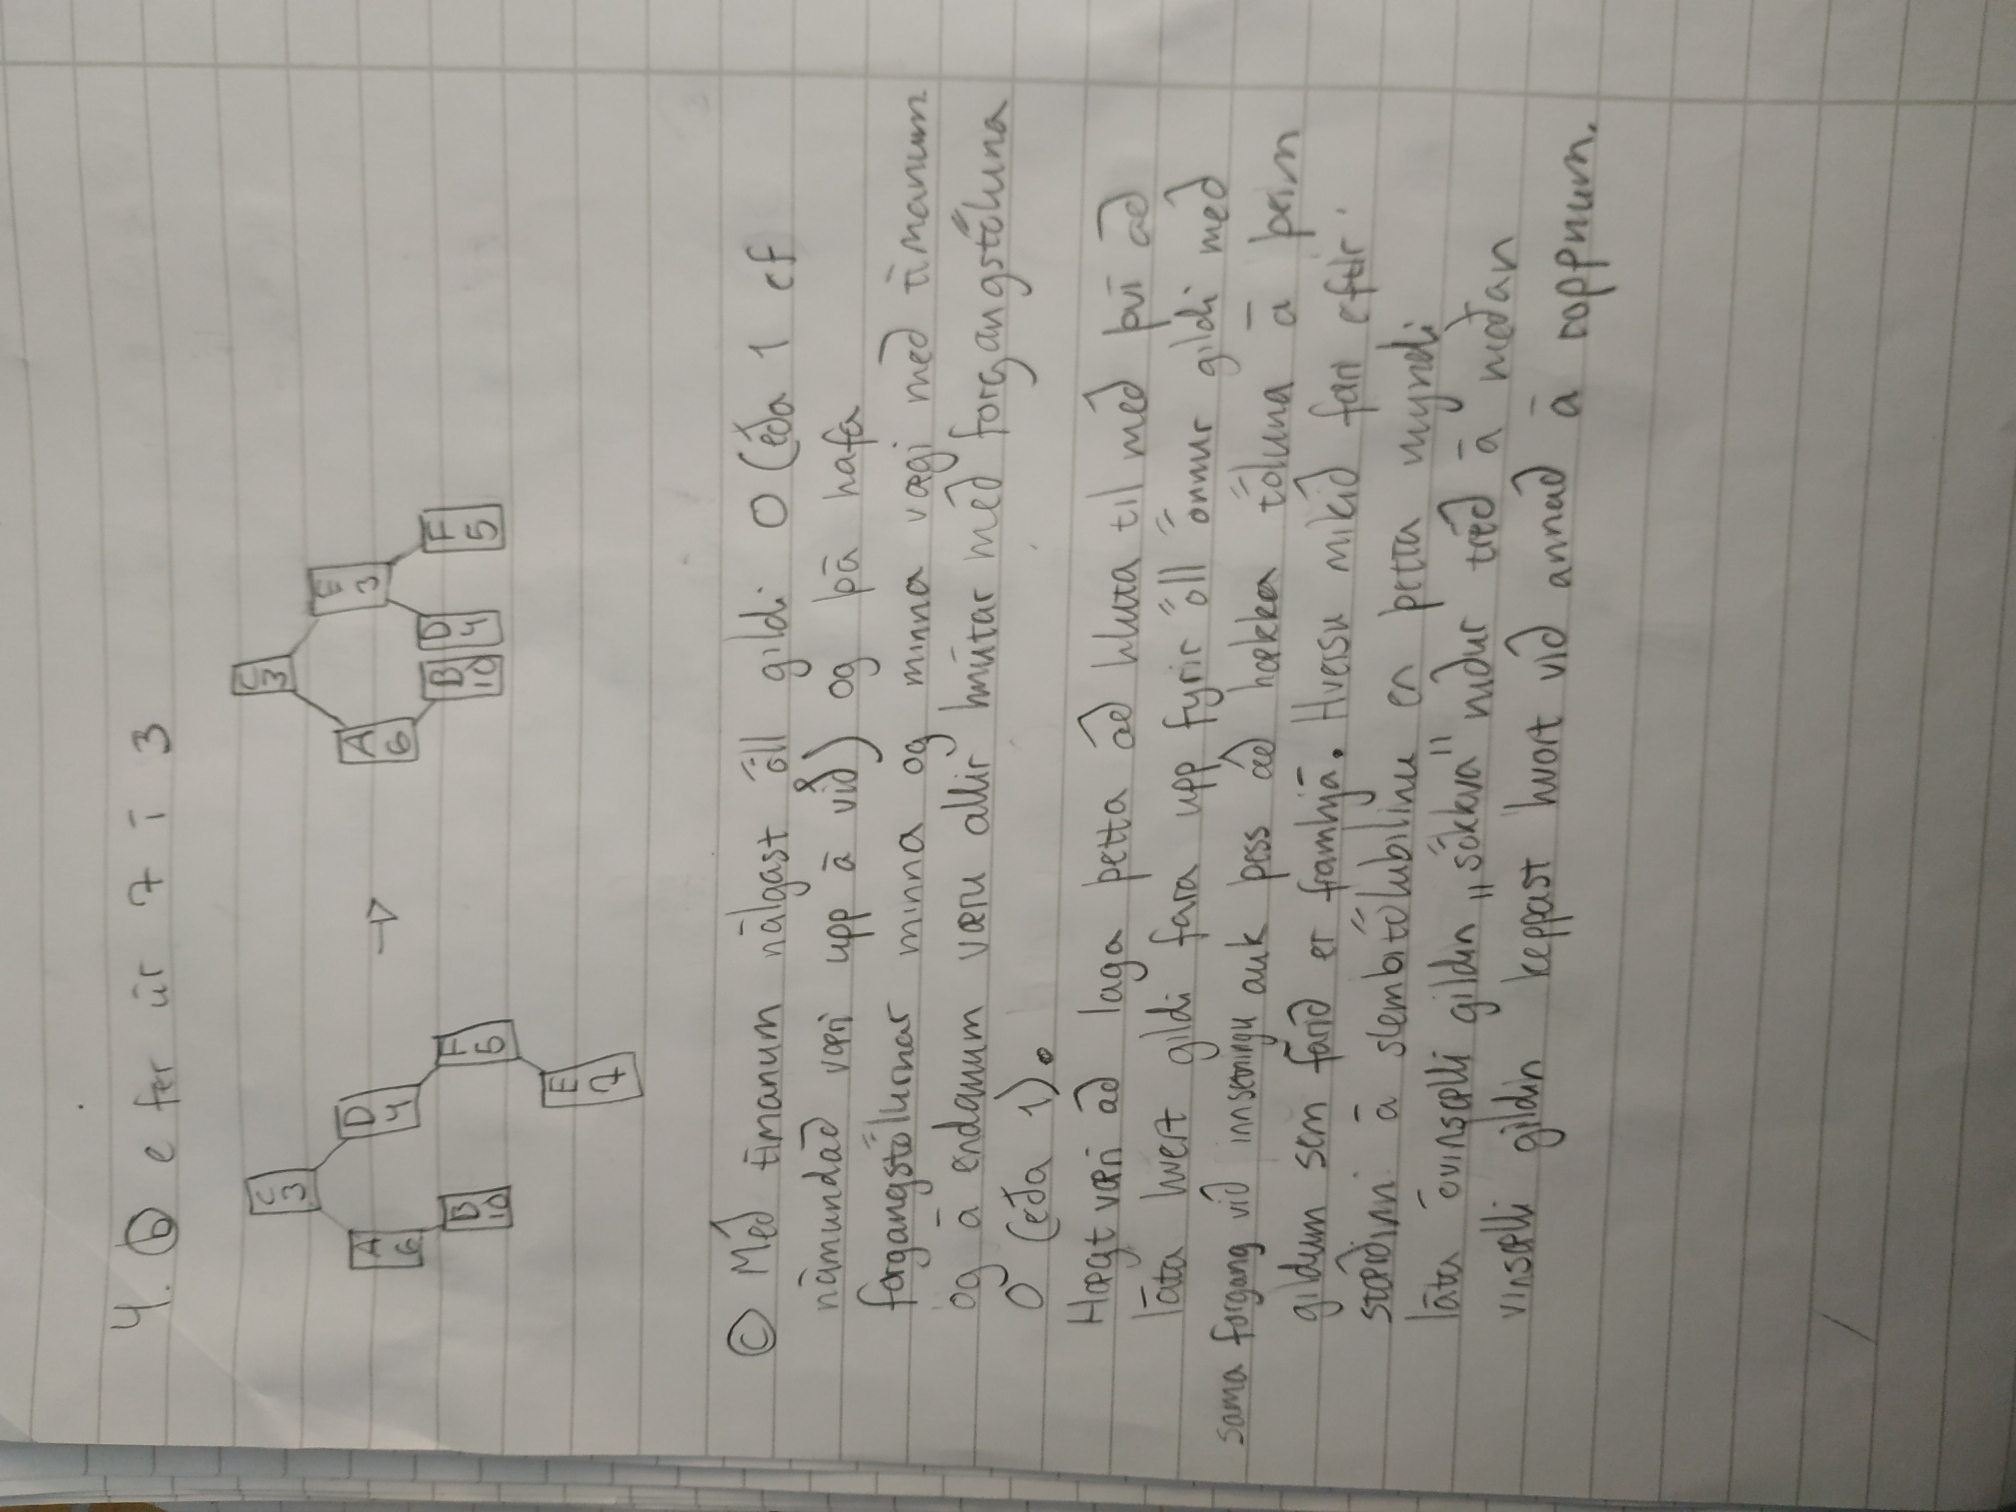 4. b e fer úr 7 í 3
C
3
A
6
D
4
B
10
F
5
E
7
C
3
A
6
E
3
B
10
D
4
F
5
c Með tímanum nálgast öll gildi 0 (eða 1 ef
námundað væri upp á við) og þá hafa
forgangstölurnar minna og minna vægi með tímanum
og á endanum væru allir hnútar með forgangstöluna
0 (eða 1).
Hægt væri að laga þetta að hluta til með því að
láta hvert gildi fara upp fyrir öll önnur gildi með
sama forgang við innsetningu auk þess að hækka töluna á þeim
gildum sem farið er framhjá. Hversu mikið færi eftir
stærðinni á slembitölubilinu en þetta myndi
láta óvinsælli gildin „sökkva" niður tréð á meðan
vinsælli gildin keppast hvort við annað á toppnum.